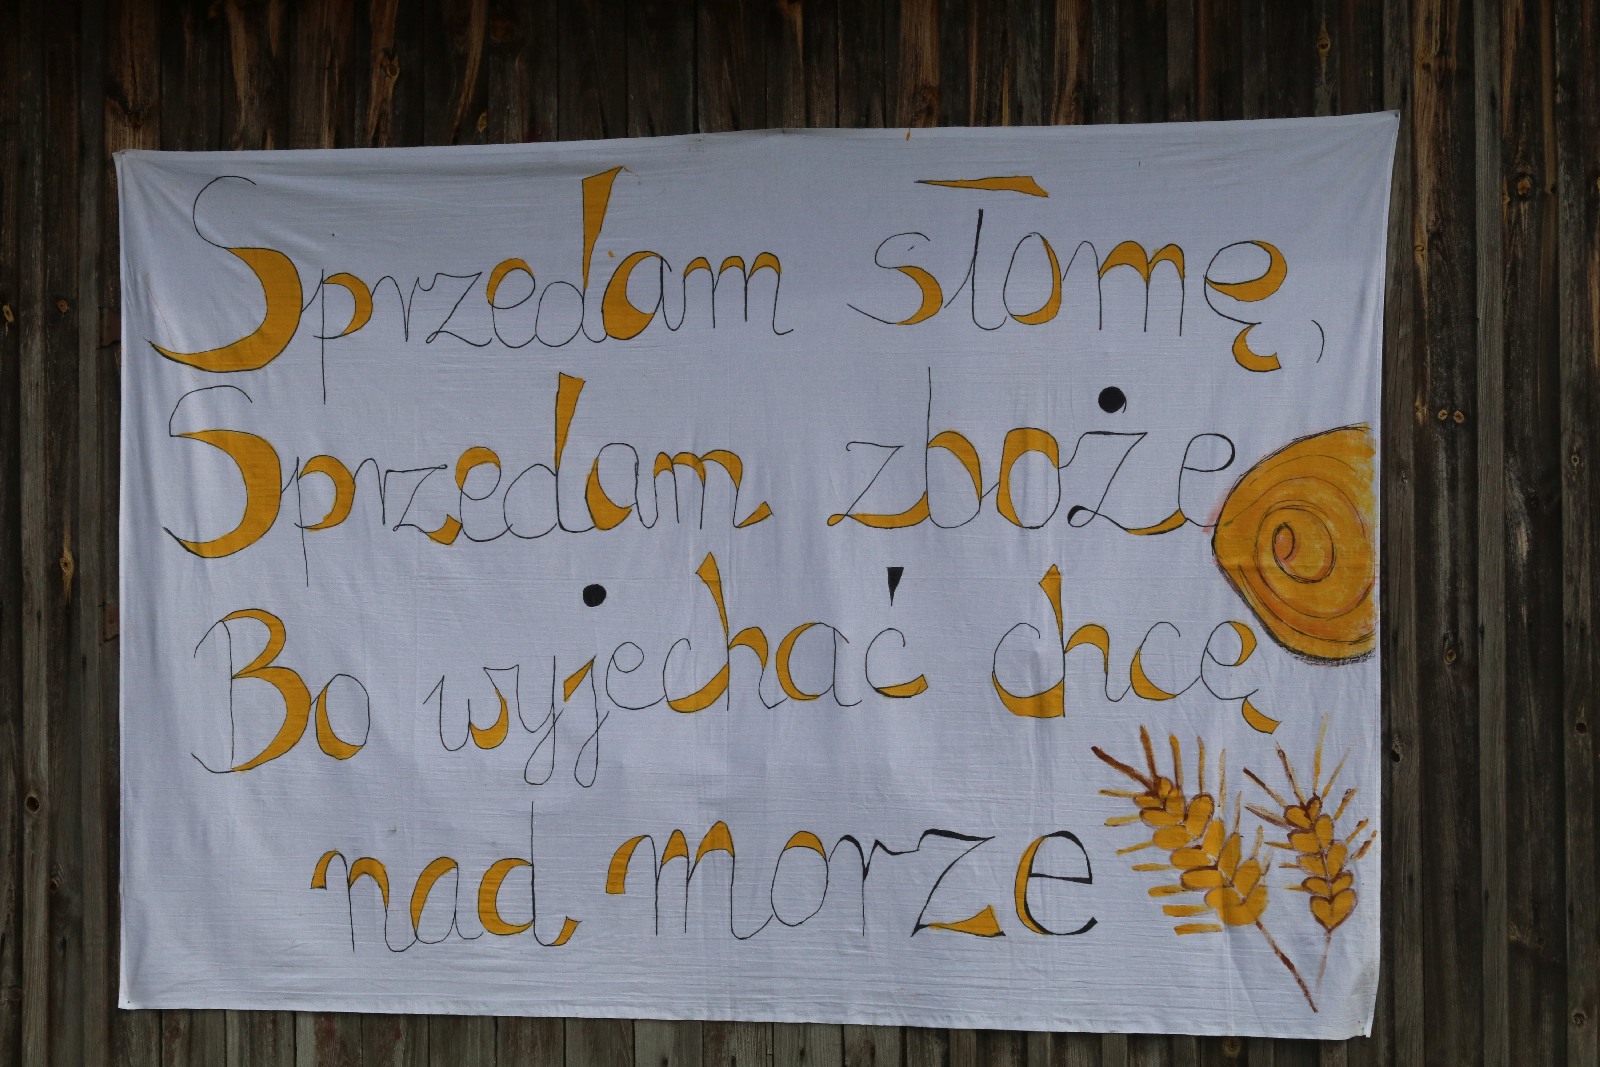 Sprzedam słomę,
Sprzedam zboże
Bo wyjechać chcę
nad morze